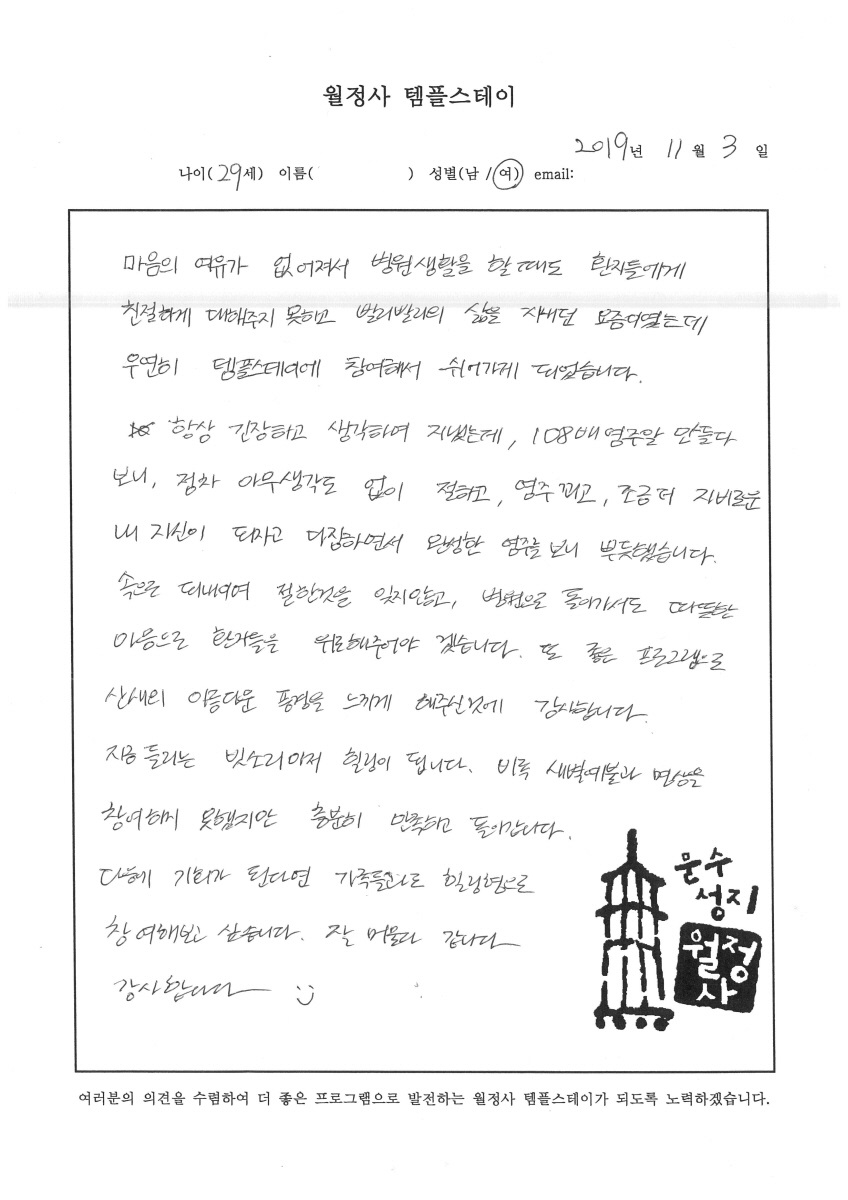 월정사 템플스테이
2019년 11월 3일
나이(29세) 이름( ) 성별(남 / 여) email:
마음의 여유가 없어져서 병원생활을 할때도 환자들에게
친절하게 대해주지 못하고 빨리빨리의 삶을 지내던 요즘이였는데
우연히 템플스테이에 참여해서 쉬어가게 되었습니다.
항상 긴장하고 생각하며 지냈는데, 108배 염주알 만들다
보니, 점차 아무생각도 없이 절하고, 염주 꿰고, 조금더 자비로운
내 자신이 되자고 다짐하면서 완성한 염주를 보니 뿌듯했습니다.
속으로 되내이며 절한것을 잊지않고, 병원으로 돌아가서도 따뜻한
마음으로 환자들을 위로해주어야 겠습니다. 또 좋은 프로그램으로
산새의 아름다운 풍경을 느끼게 해주신것에 감사합니다.
지금 들리는 빗소리마저 힐링이 됩니다. 비록 새벽예불과 명상은
참여하지 못했지만 충분히 만족하고 돌아갑니다.
다음에 기회가 된다면 가족들과도 힐링형으로
참여해보고 싶습니다. 잘 머물다 갑니다
감사합니다 :)
문수
성지
월정
사
여러분의 의견을 수렴하여 더 좋은 프로그램으로 발전하는 월정사 템플스테이가 되도록 노력하겠습니다.